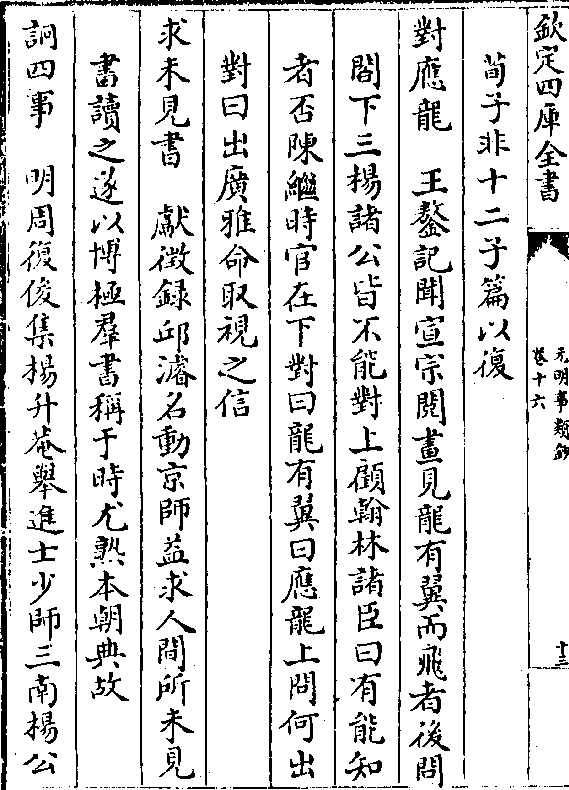 欽定四庫全書
元明事類鈔
卷十六
十三
荀子非十二子篇以復
對應龍　王鏊記聞宣宗閱畫見龍有翼而飛者後問
閣下三楊諸公皆不能對上顧翰林諸臣曰有能知
者否陳繼時官在下對曰龍有翼曰應龍上問何出
對曰出廣雅命取視之信
求未見書　獻徵録邱濬名動京師益求人間所未見
書讀之遂以博極羣書稱于時尤熟本朝典故
詗四事　明周復俊集楊升菴舉進士少師三南楊公